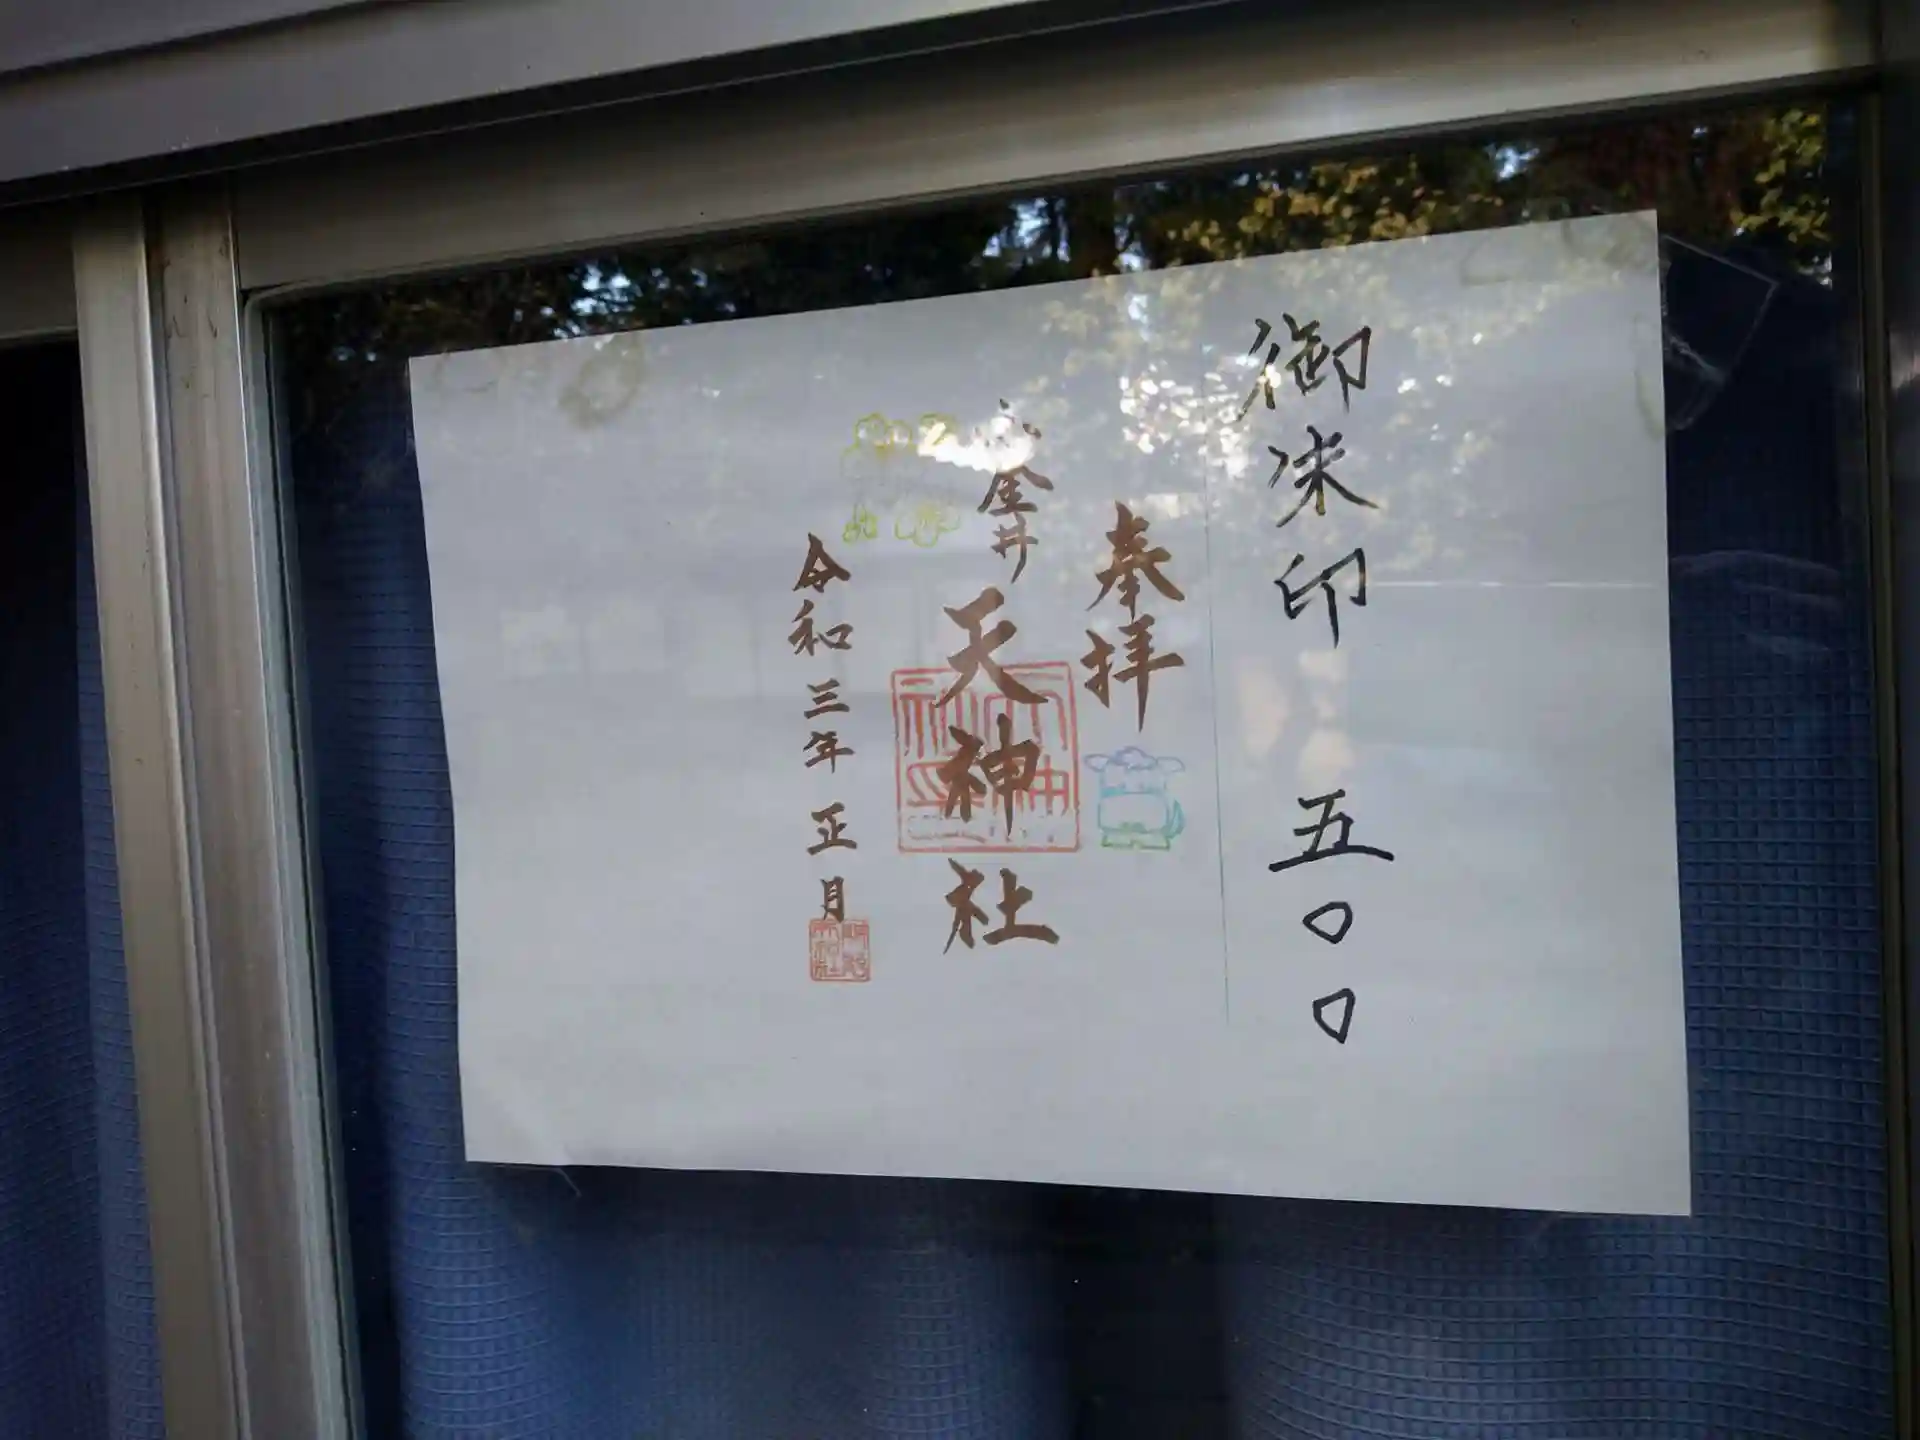 御朱印 五〇〇
奉拝
小金井
天神社
令和三年正月